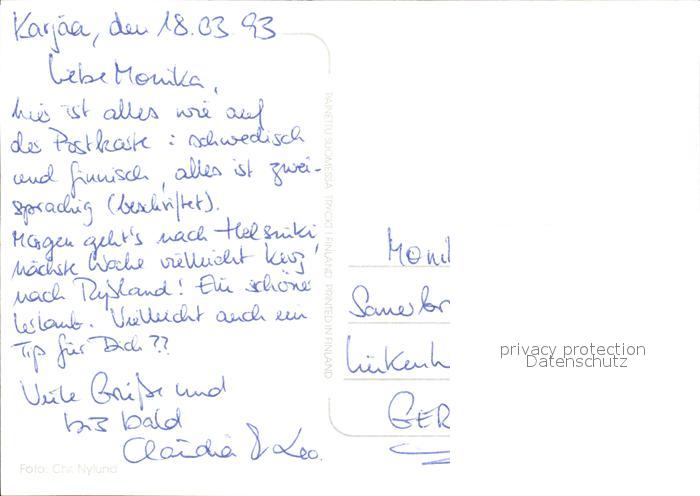 Karjaa, den 18.03.93
Liebe Monika,
hier ist alles wie auf
der Postkarte : schwedisch
und finnisch, alles ist zwei-
sprachig (beschriftet).
Morgen geht's nach Helsinki,
nächste Woche vielleicht kurz
nach Rußland! Ein schöner
Urlaub. Vielleicht auch ein
Tip für Dich??
Viele Grüße und
bis bald
Claudia & Leo.
Foto: Chr. Nylund
PAINETTU SUOMESSA TRYCKT I FINLAND PRINTED IN FINLAND
Moni
GER
privacy protection
Datenschutz